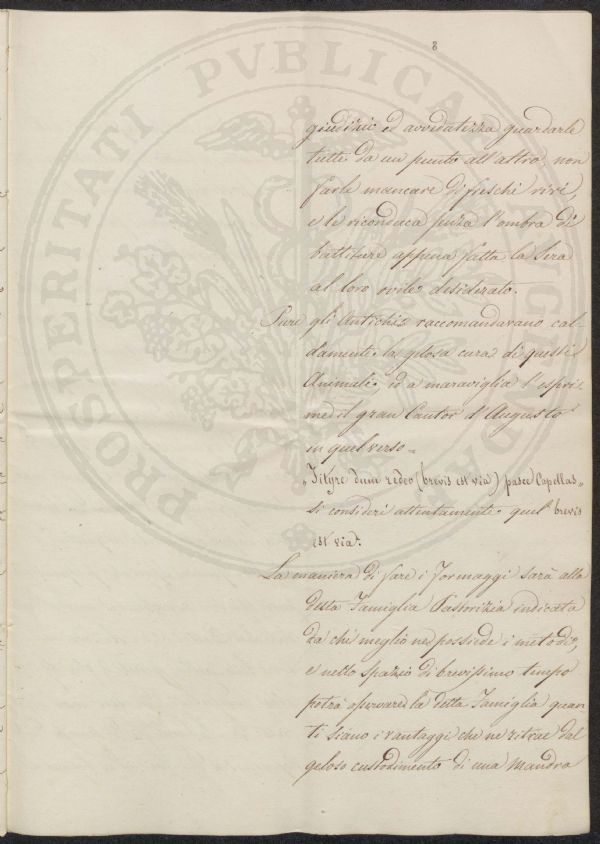 8
giudizio ed avvedutezza guardarle
tutte da un punto all'altro, non
farle mancare di freschi rivi,
e le riconduca senza l'ombra di
battiture appena fatta la sera
al loro ovile desiderato.
Pure gli Antichi raccomandavano cal-
damente la gelosa cura di questi
Animali, ed a maraviglia l'espri-
me il gran Cantor d'Augusto
in quel verso =
„Tityre dum redeo (brevis est via) pasce Capellas„
si consideri attentamente quel brevis
est via.
La maniera di fare i Formaggi sarà alla
detta Famiglia Pastorizia indicata
da chi meglio ne possiede i metodi,
e nello spazio di brevissimo tempo
potrà osservare la detta Famiglia quan
ti siano i vantaggi che ne ritrae dal
geloso custodimento di una Mandra
PROSPERITATI PVBLICAE AVGENDAE